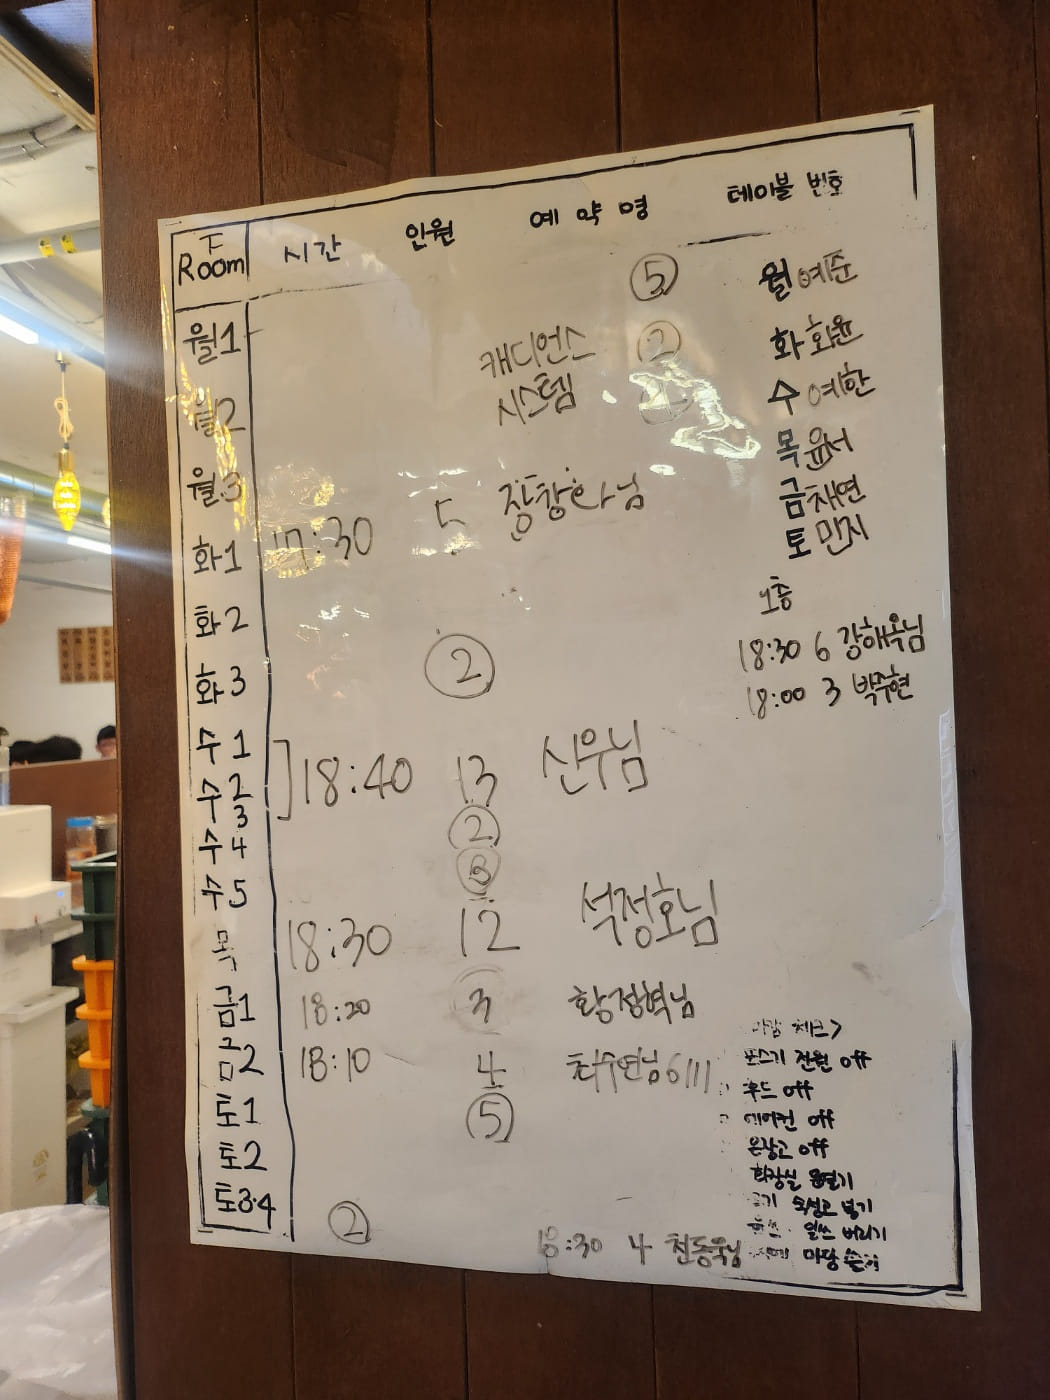 Room 시간 인원 예약명 테이블 번호
⑤ 월 예준
월1 캐디언스 ② 화 화윤
시스템 수 예한
월2
목 윤서
월3 금 채연
17:30 5 장창환님
토 민지
화1
1층
화2 18:30 6 강해옥님
② 18:00 3 박주현
화3
수1
수2 18:40 13 신우님
3 ②
수4 ③
수5
목 18:30 12 석정호님
금1 18:20 3 황정혁님
마감 체크>
금2 18:10 4 최수연님 6111
포스기 전원 off
후드 off
토1 ⑤ 에어컨 off
토2 온장고 off
화장실 문열기
토3·4 숙성고 넣기
② 버리기
18:30 4 천동욱님 마당 쓸기